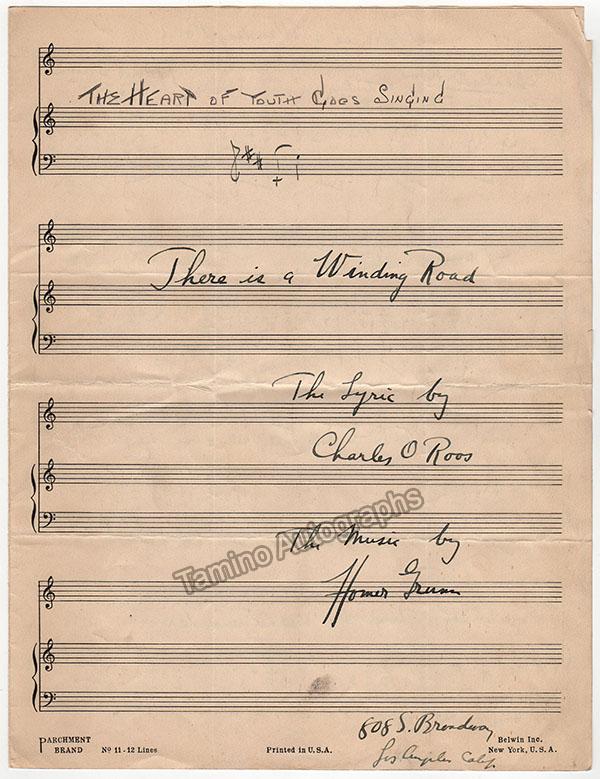 THE HEART OF YOUTH GOES SINGING
There is a Winding Road
The Lyric by
Charles O Roos
The Music by
Homer Grunn
Tamino Autographs
808 S. Broadway
Los Angeles Calif.
PARCHMENT
BRAND
No 11-12 Lines
Printed in U.S.A.
Belwin Inc.
New York, U.S.A.